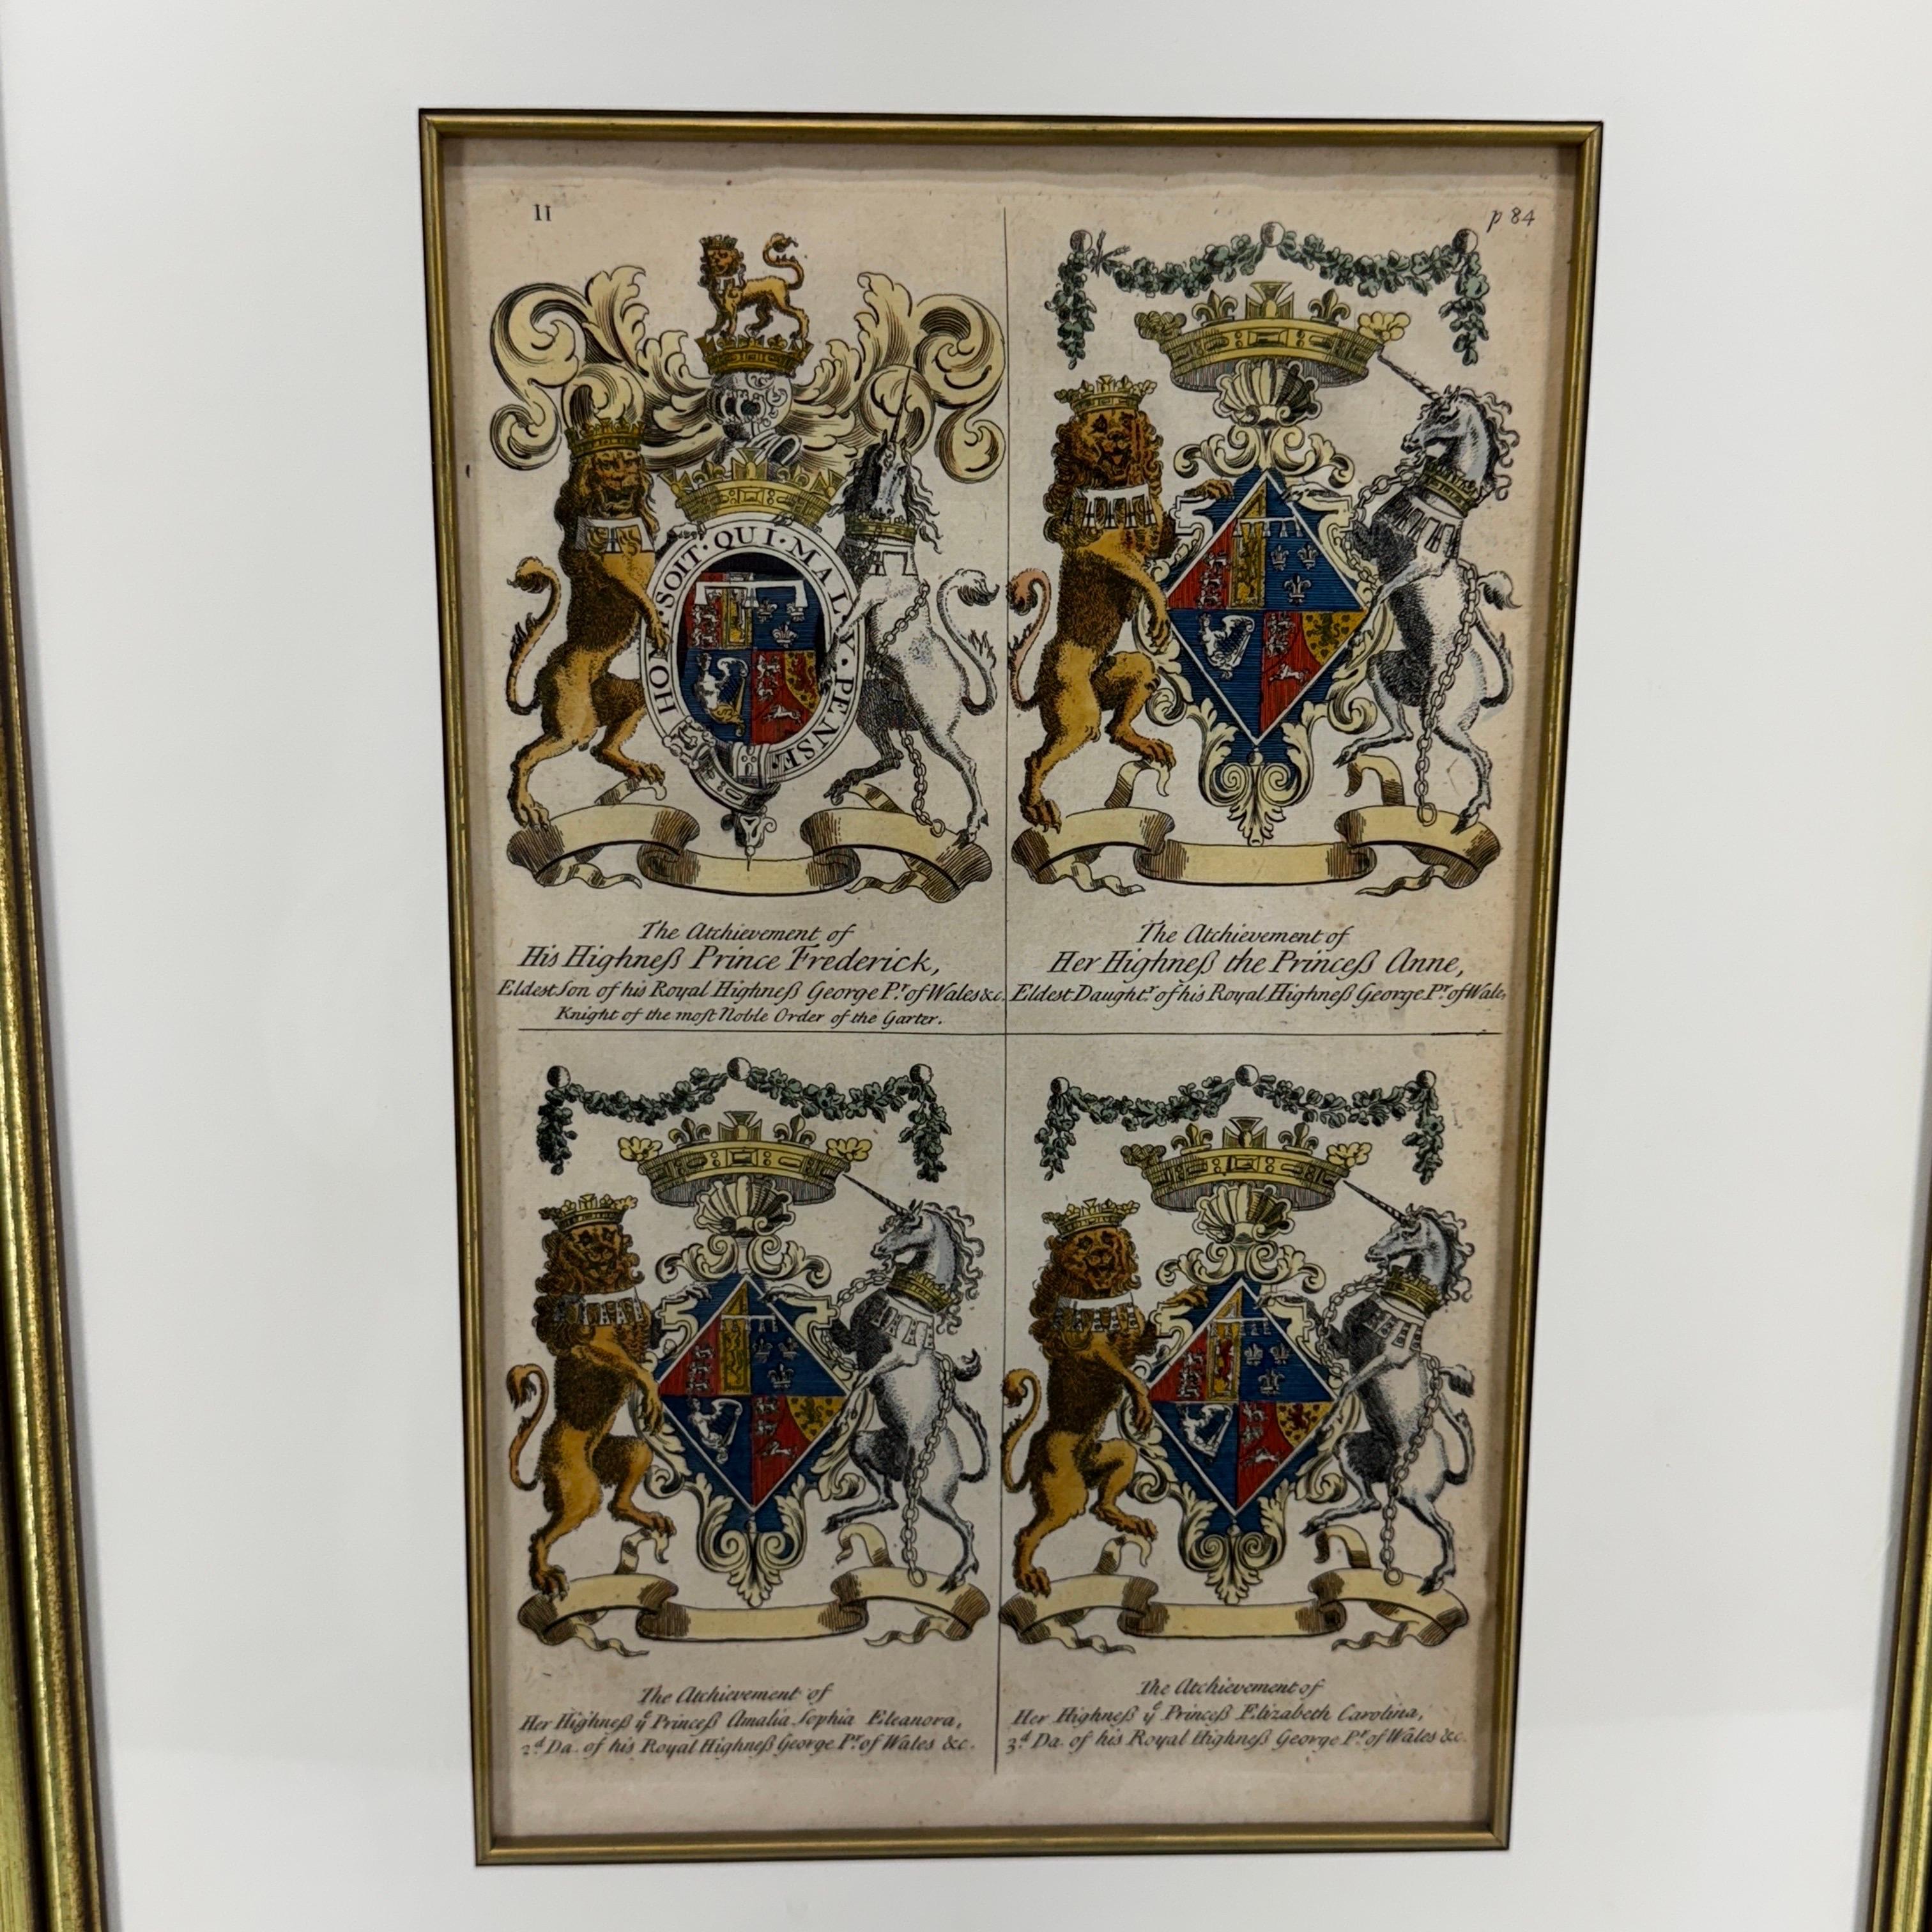 11
p 84
HONI·SOIT·QUI·MAL·Y·PENSE·
The Atchievement of
His Highneß Prince Frederick,
Eldest Son of his Royal Highneß George Pr. of Wales &c.
Knight of the most Noble Order of the Garter.
The Atchievement of
Her Highneß the Princeß Anne,
Eldest Daughtr. of his Royal Highneß George Pr. of Wales
The Atchievement of
Her Highneß ye Princeß Amalia Sophia Eleanora,
2d. Da. of his Royal Highneß George Pr. of Wales &c.
The Atchievement of
Her Highneß ye Princeß Elizabeth Carolina,
3d. Da. of his Royal Highneß George Pr. of Wales &c.